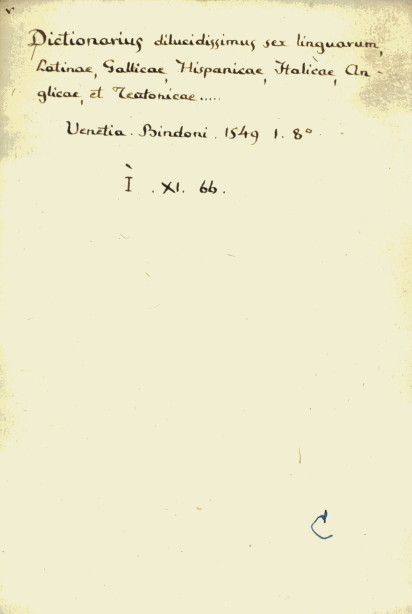 Dictionarius dilucidissimus sex linguarum,
Latinae, Gallicae, Hispanicae, Italicae, An-
glicae, et Teatonicae.....
Venetia. Bindoni. 1549 1. 8º
I . XI. 66.
C